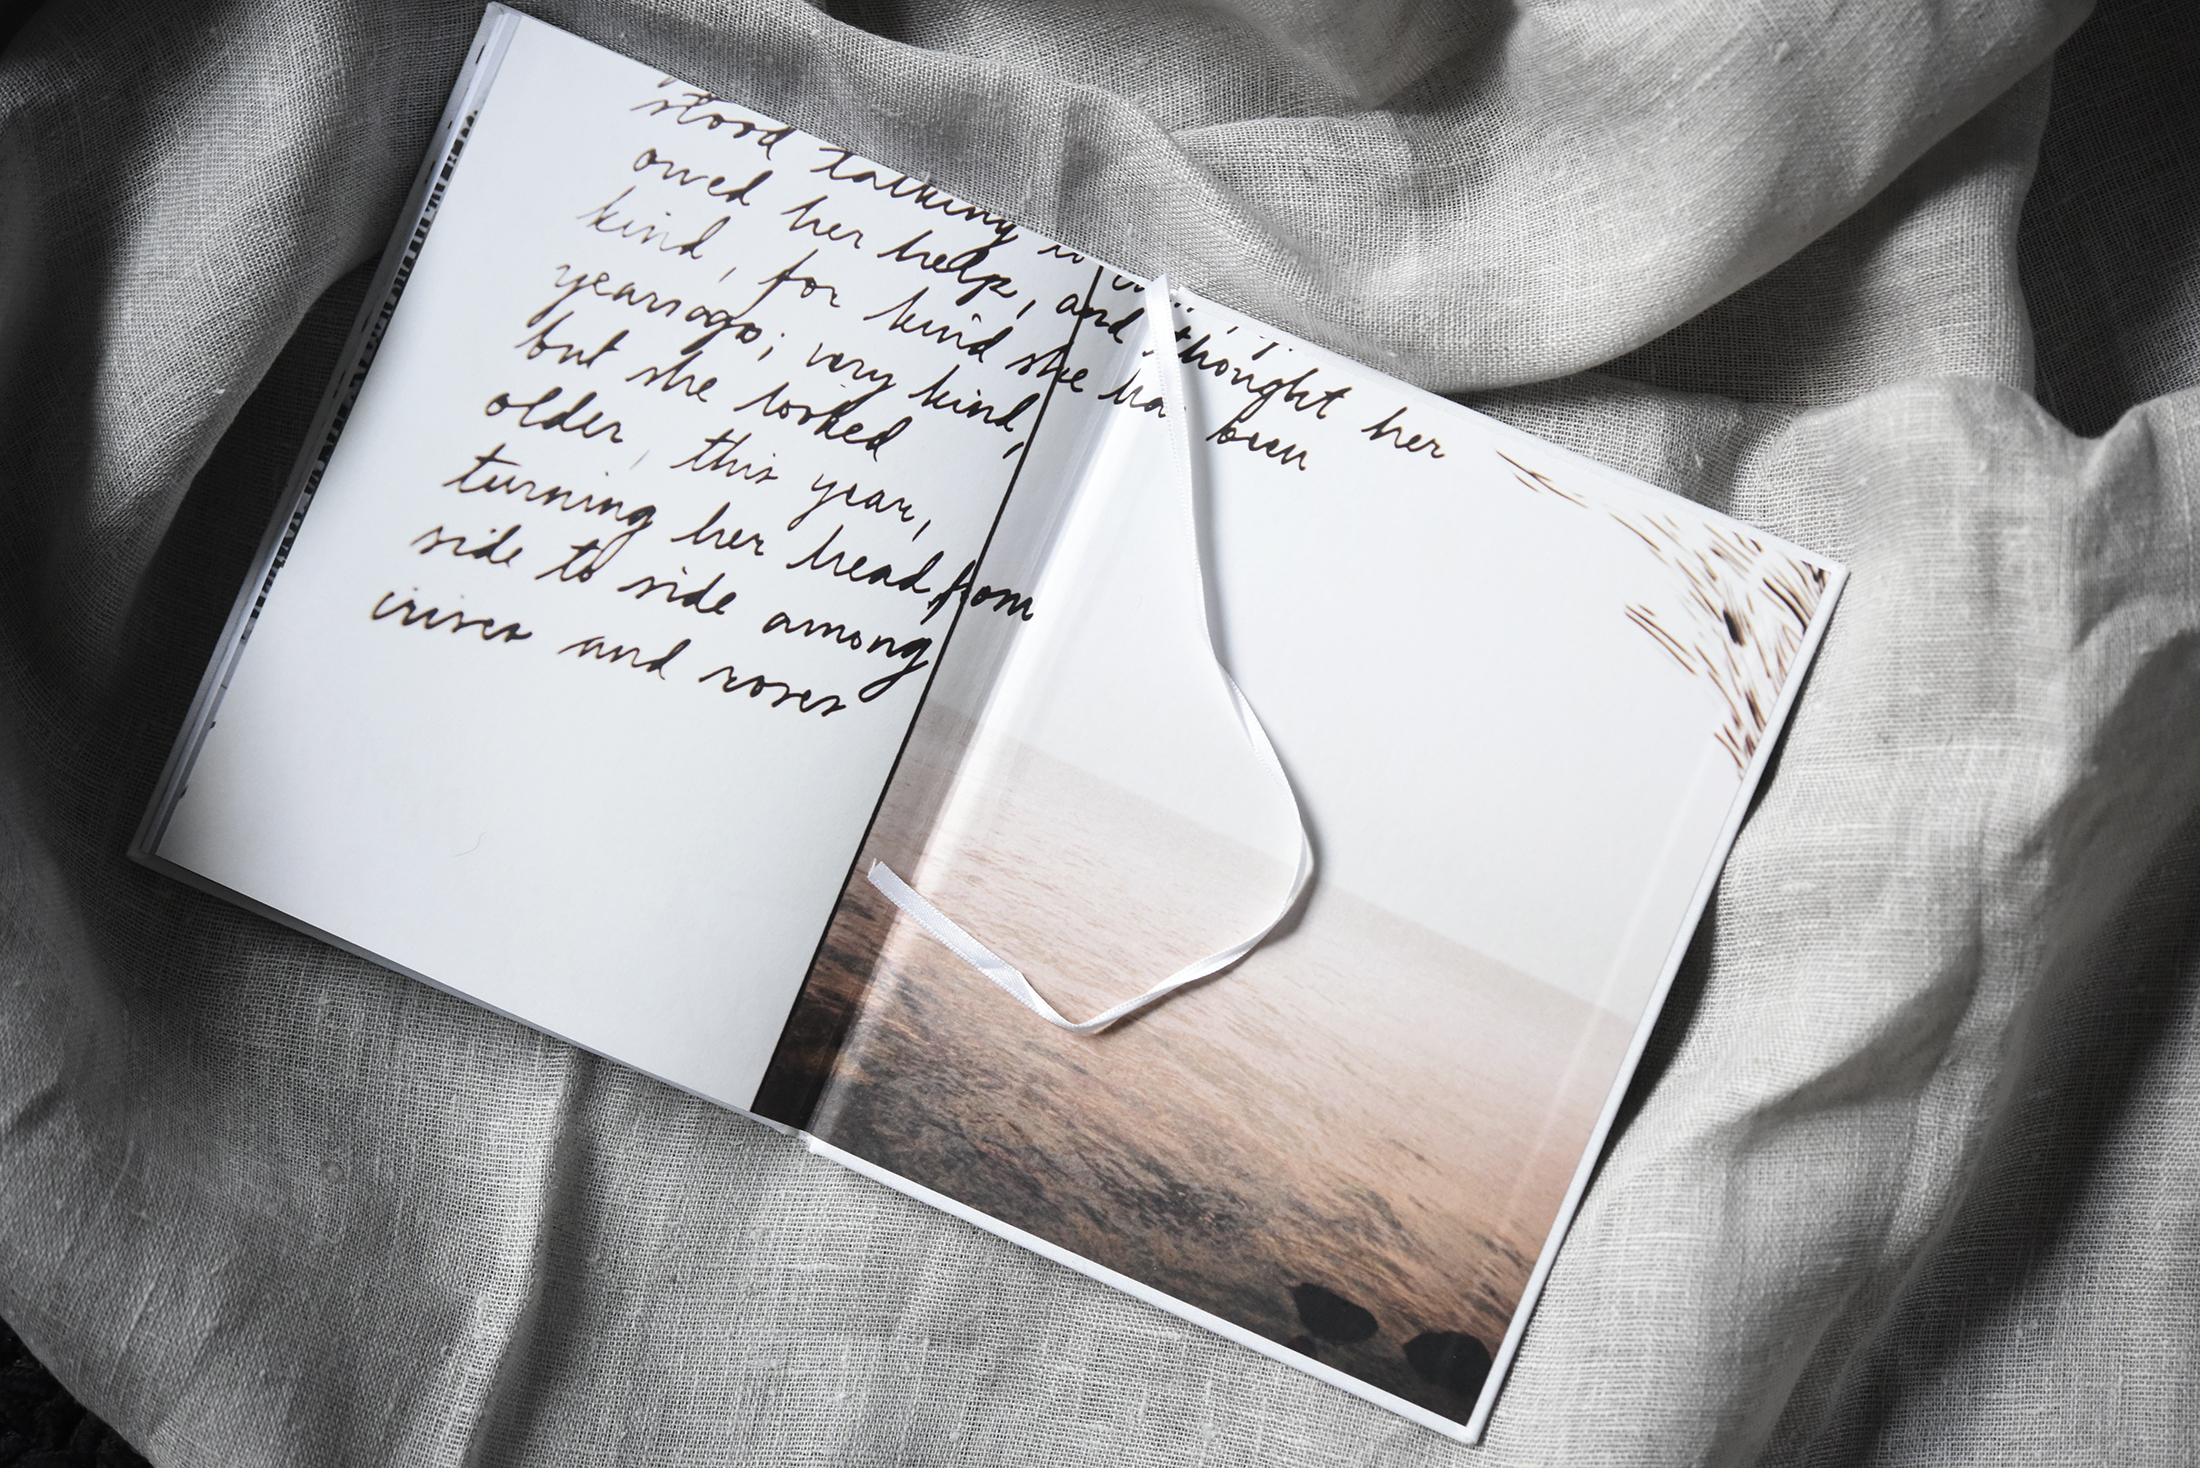 stood talking to
owed her help, and thought her
kind, for kind she had been
years ago; very kind,
but she looked
older, this year,
turning her head from
side to side among
irises and roses